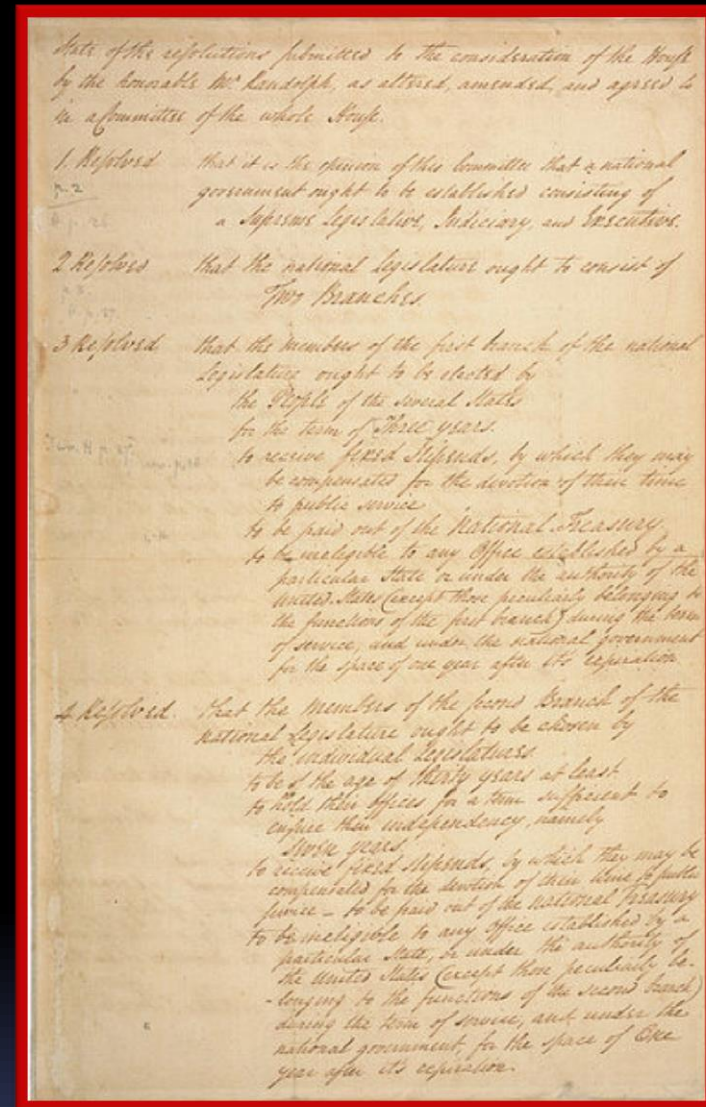 State of the resolutions submitted to the consideration of the House
by the honorable Mr. Randolph, as altered, amended, and agreed to
in a Committee of the whole House.
1. Resolved that it is the opinion of this Committee that a national
p. 2 government ought to be established consisting of
a Supreme Legislative, Judiciary, and Executive.
2 Resolved that the national Legislature ought to consist of
Two Branches.
3 Resolved that the members of the first branch of the national
Legislature ought to be elected by
the People of the several States
for the term of Three years.
to receive fixed Stipends, by which they may
be compensated for the devotion of their time
to public service
to be paid out of the National Treasury.
to be ineligible to any Office established by a
particular State or under the authority of the
United States (except those peculiarly belonging to
the functions of the first branch) during the term
of service, and under the national government
for the space of one year after it's expiration.
4 Resolved. that the members of the second Branch of the
national Legislature ought to be chosen by
the individual Legislatures.
to be of the age of thirty years at least.
to hold their offices for a term sufficient to
ensure their independency, namely
seven years.
to receive fixed stipends, by which they may be
compensated for the devotion of their time to public
service – to be paid out of the National Treasury
to be ineligible to any Office established by a
particular State, or under the authority of
the United States (except those peculiarly be-
-longing to the functions of the second branch)
during the term of service, and under the
national government, for the space of One
year after it's expiration.